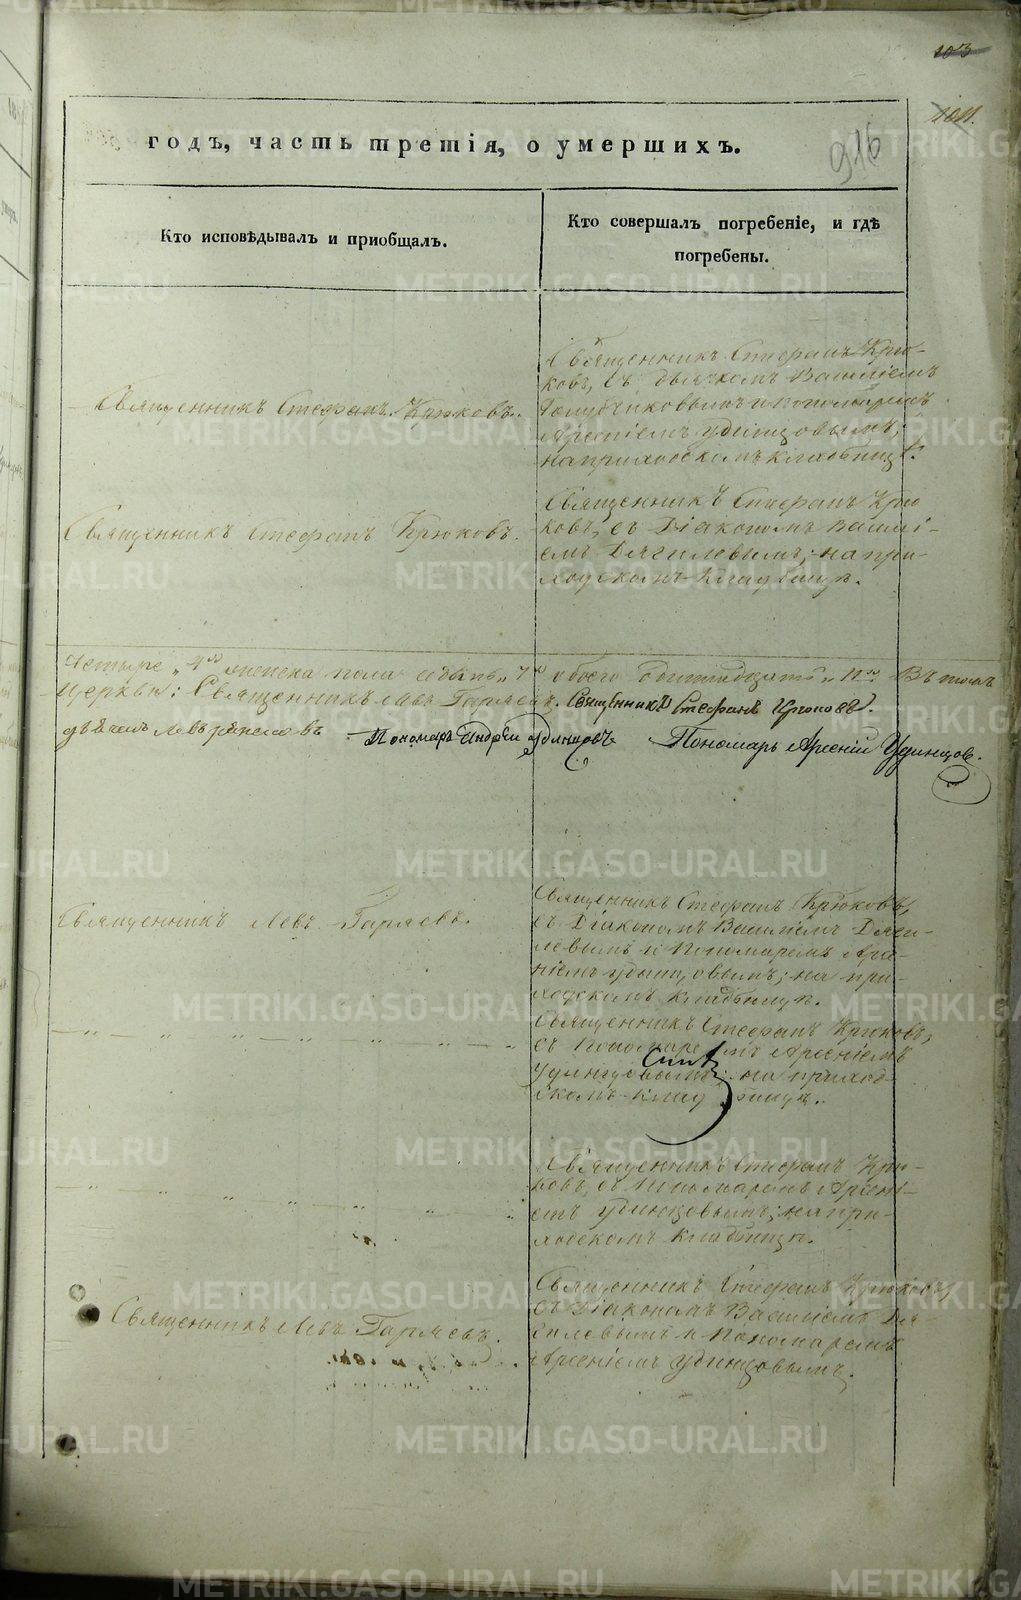 103
104.
916
годъ, часть третія, о умершихъ.
Кто исповѣдывалъ и приобщалъ.
Кто совершалъ погребеніе, и гдѣ
погребены.
Священникъ Стефанъ Крюковъ.
Священникъ Стефанъ Крю-
ковъ, съ дьячкомъ Василіемъ
Голубчиковымъ и пономаремъ
Арсеніемъ Удинцовымъ;
на приходскомъ кладбищѣ.
Священникъ Стефанъ Крюковъ.
Священникъ Стефанъ Крю
ковъ, съ Діакономъ Василі-
емъ Дягилевымъ; на при-
ходскомъ кладбищѣ.
Четыре „4“ женска пола семь „7“ обоего одиннадцать „11“ Въ томъ
Церкви: Священникъ Левъ Гаряевъ. Священникъ Стефанъ Крюковъ.
Пономарь Андрей Удинцовъ Пономарь Арсеній Удинцов.
Священникъ Левъ Гаряевъ.
Священникъ Стефанъ Крюковъ,
съ Діакономъ Василіемъ Дяги-
левымъ и Пономаремъ Арсе-
ніемъ Удинцовымъ; на при-
ходскомъ кладбищѣ.
Священникъ Стефанъ Крюковъ,
съ Пономаремъ Арсеніемъ
Удинцовымъ; на приход-
скомъ кладбищѣ.
Священникъ Стефанъ Крю-
ковъ, съ Пономаремъ Арсені-
емъ Удинцовымъ; на при-
ходскомъ кладбищѣ.
Священникъ Левъ Гаряевъ.
Священникъ Стефанъ Крюковъ,
съ Діакономъ Василіемъ Дя-
гилевымъ и Пономаремъ
Арсеніемъ Удинцовымъ.
METRIKI.GASO-URAL.RU